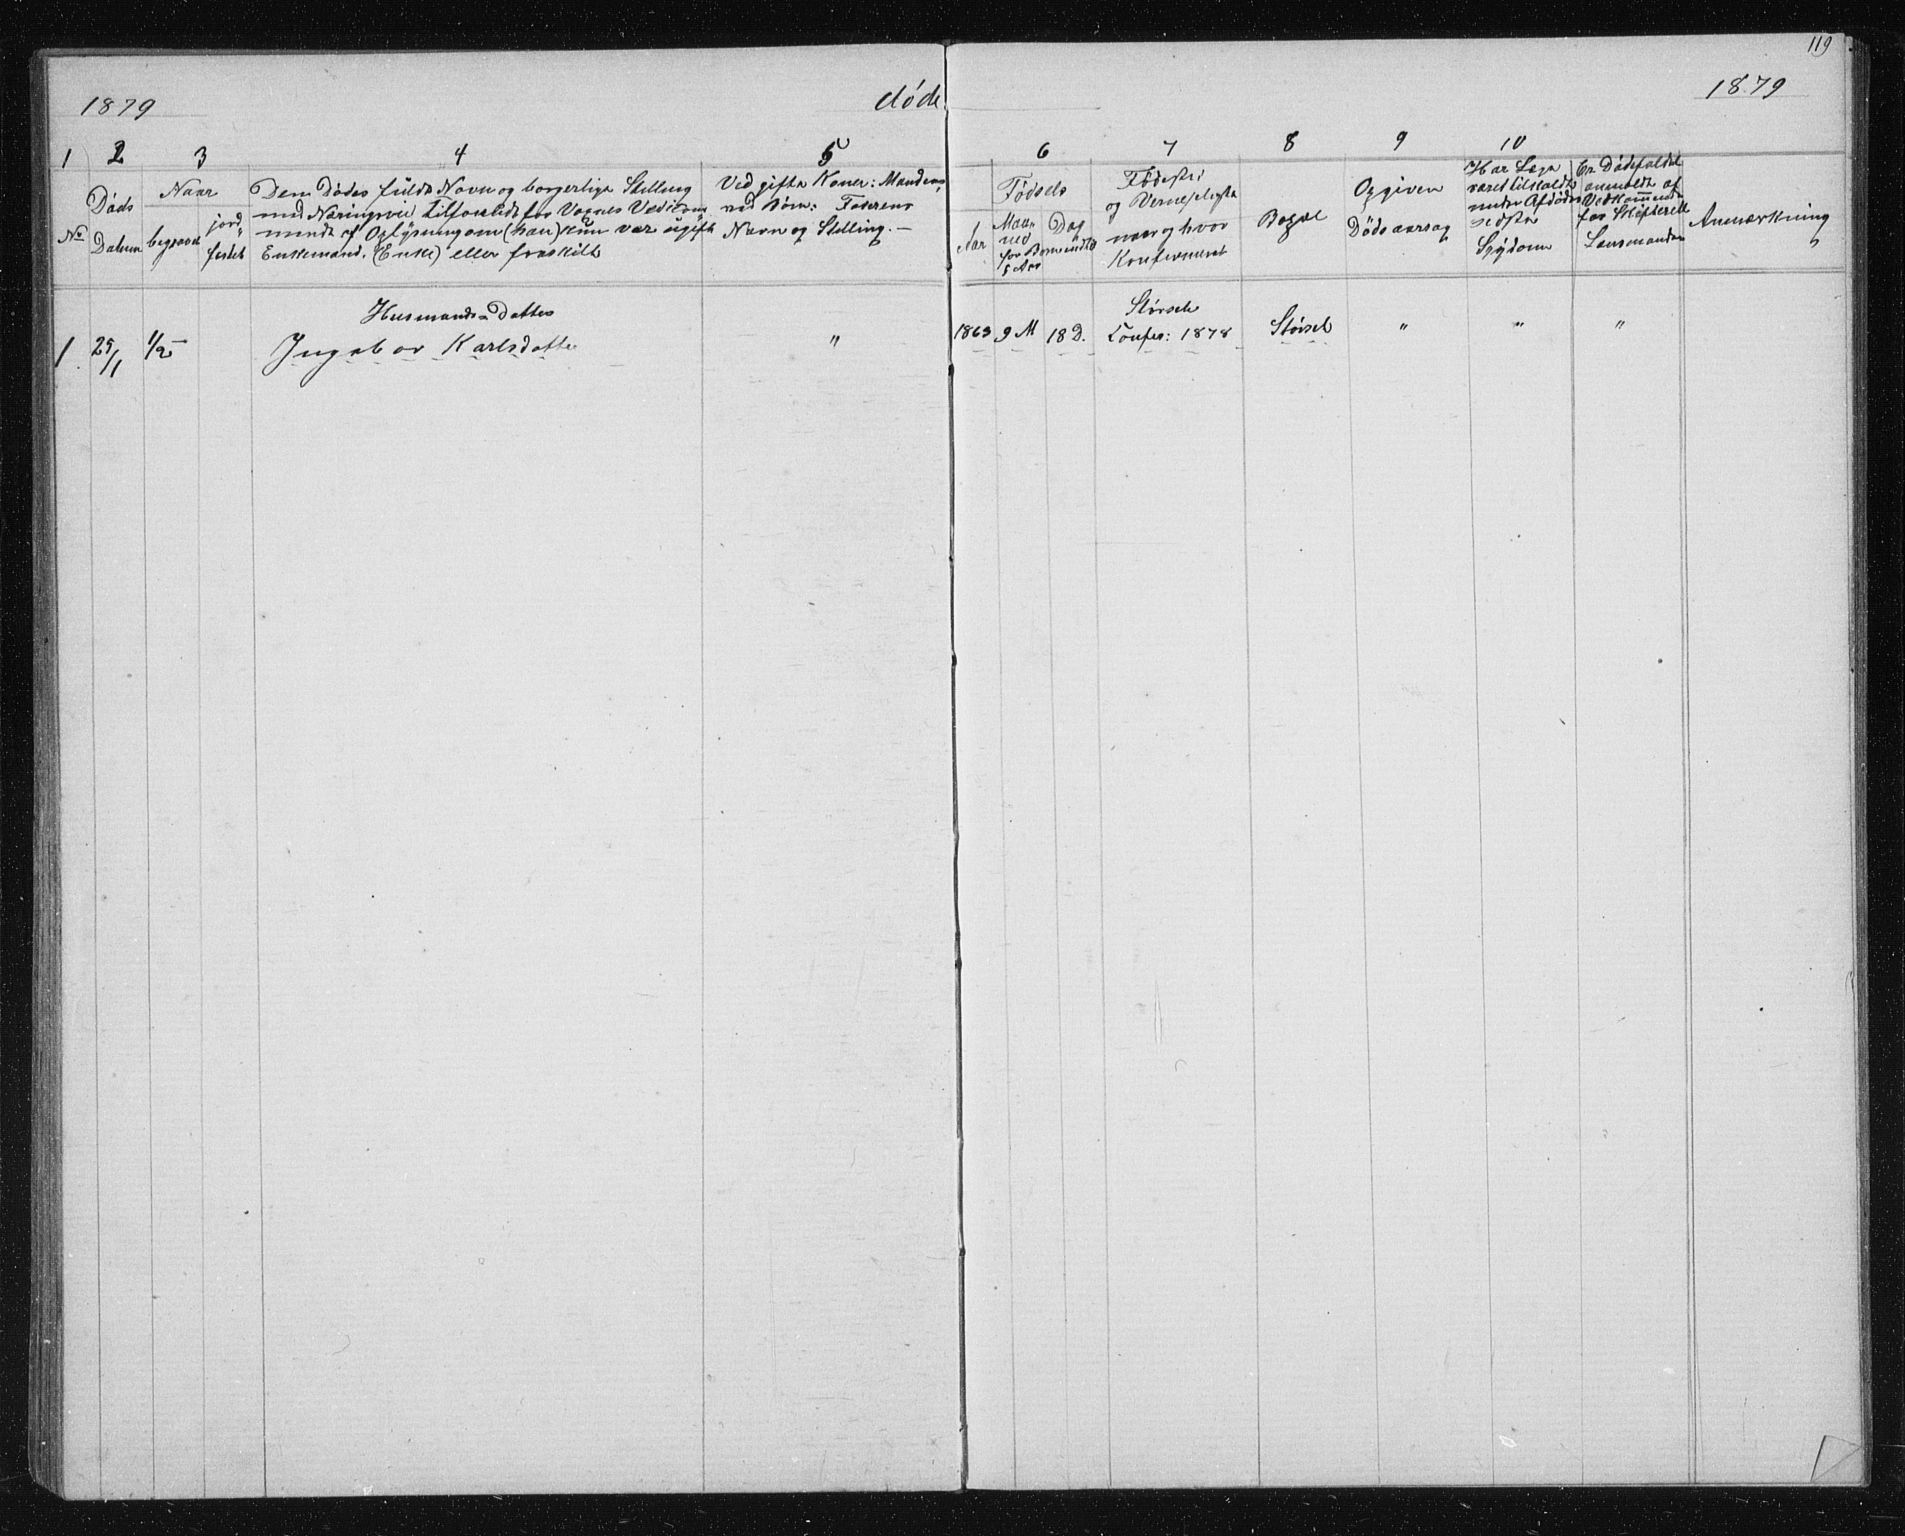 119
1879 døde 1879
1 2 3 4 5 6 7 8 9 10
No
Døds Datum
Naar
begravet
jord„ festet
Den Dødes fulde Navn og borgerlige Stilling
med Næringsvei tilforladt for Voxnes Vedkom„
mende af Oplysning om (han) kun var ugift
Enkemand, (Enke) eller fraskilt
Ved gifte Koner: Mandens
ved Børn: Faderens
Navn og Stilling.–
Fødsels
Aar
Maa„
ned
Dag
for Børn indtil
5 Aar
Fødested
og Vernepligt
naar og hvor
Konfirmeret
Bopæl
Opgiven
Dødsaarsag
Har Læge
været tilkaldt
under Afdødes
sidste
Sygdom
Er Dødsfaldet
anmeldt af
Vedkommende
for Skifterett
Lensmanden
Anmærkning
Husmands Datter
1 25/1 1/2 Ingebor Karlsdatte „ 1863 9 M 18 D.
Størsele
Confir: 1878
Størsel „ „ „